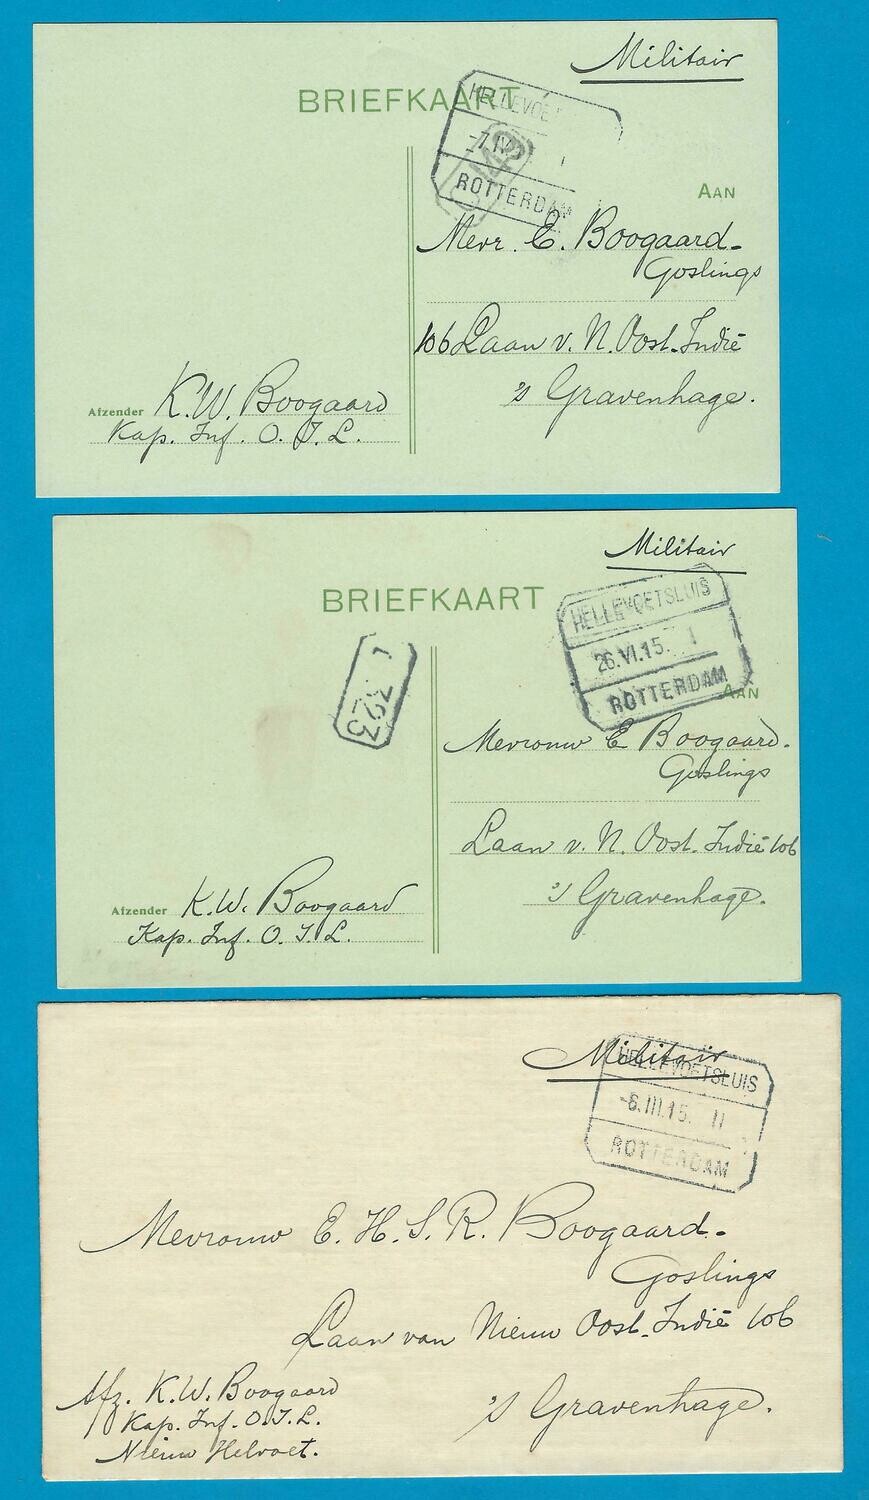 Militair
BRIEFKAART
HELLEVOE
-7.IV
ROTTERDAM
AAN
Mevr. E. Boogaard-
Goslings
106 Laan v. N. Oost-Indië
's Gravenhage.
Afzender K.W. Boogaard
Kap. Inf. O.I.L.
Militair
BRIEFKAART
HELLEVOETSLUIS
26.VI.15. 1
ROTTERDAM
323
AAN
Mevrouw E Boogaard-
Goslings
Laan v. N. Oost-Indië 106
's Gravenhage.
Afzender K.W. Boogaard
Kap. Inf. O.I.L.
Militair
HELLEVOETSLUIS
-6.III.15. II
ROTTERDAM
Mevrouw E. H. S. R. Boogaard-
Goslings
Laan van Nieuw Oost-Indië 106
's Gravenhage.
Afz. K.W. Boogaard
Kap. Inf. O.I.L.
Nieuw Helvoet.